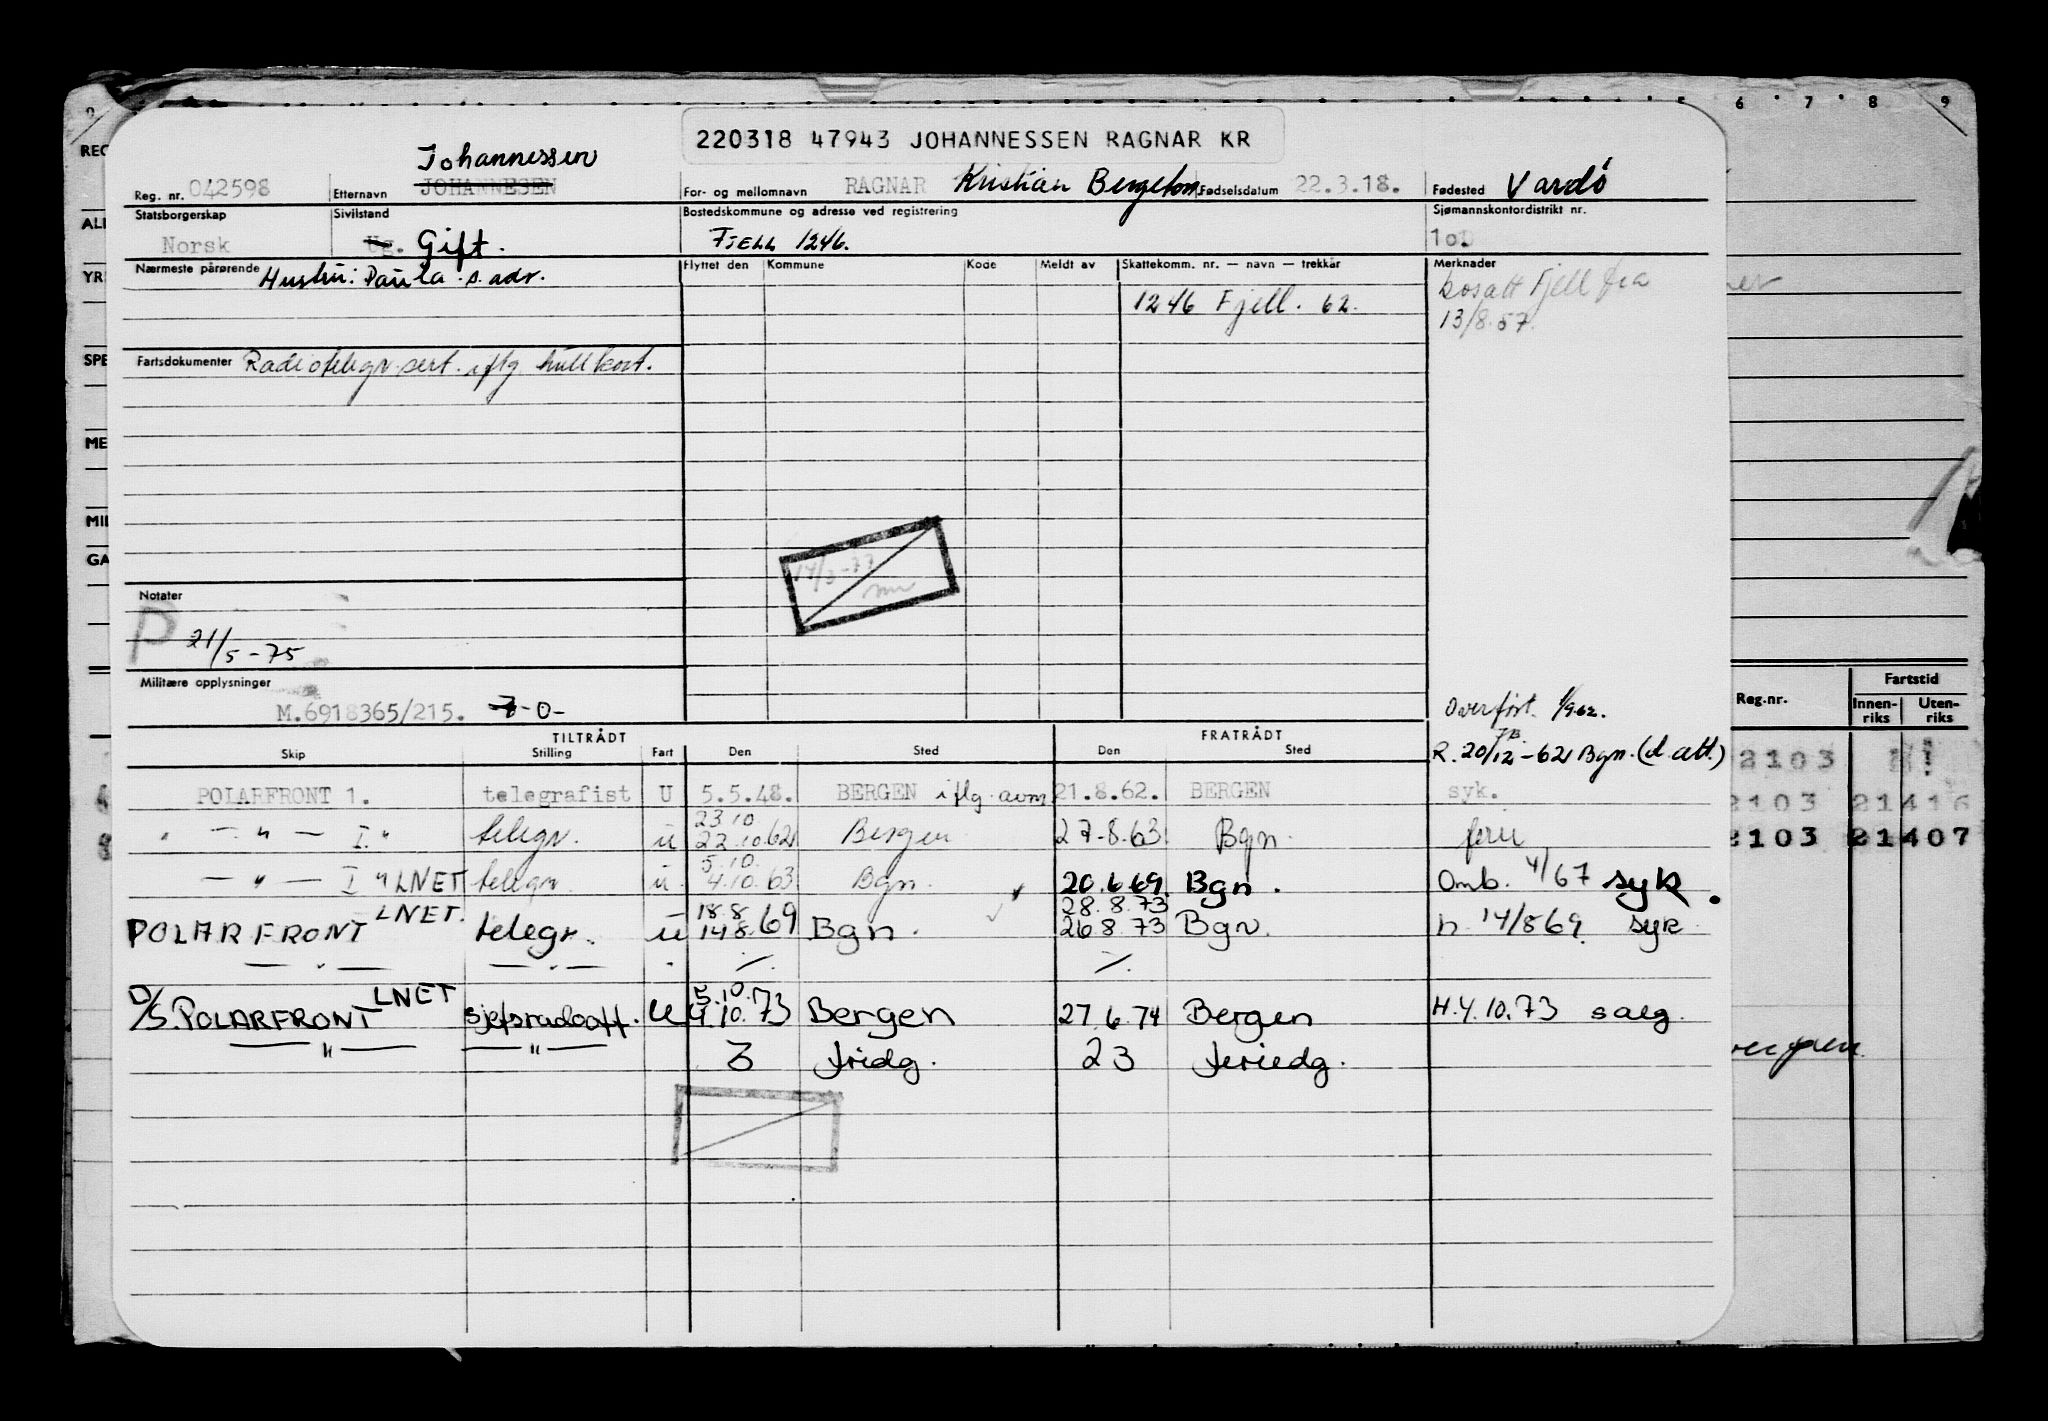 6 7 8 9
220318 47943 JOHANNESSEN RAGNAR KR
Johannessen
Reg. nr. 042598 Etternavn JOHANNESEN For- og mellomnavn RAGNAR Kristian Fødselsdatum 22.3.18. Fødested Vardö
Statsborgerskap Sivilstand Bostedskommune og adresse ved registrering Sjømannskontordistrikt nr.
Norsk Ug. Gift. FJELL 1246. 1o.
Nærmeste pårørende Hustru: Paula s. adr. Flyttet den Kommune Kode Meldt av Skattekomm. nr. — navn — trekkår Merknader
1246 Fjell. 62. bosatt Fjell fra
13/8.57.
Fartsdokumenter Radiotelegr. sert. iflg hullkort.
14/3-77
Notater
P 21/5-75
Militære opplysninger
M.6918365/215. 7-0-
Overført 1/9.62.
TILTRÅDT FRATRÅDT
Skip Stilling Fart Den Sted Den Sted R. 20/12-62 Bgn. (d. att.)
POLARFRONT 1. telegrafist U 5.5.48. BERGEN iflg. avm 21.8.62. BERGEN syk.
23 10
" — " — I. " telegr. u 22.10.62 Bergen 27-8.63 Bgn. ferie
5.10.
— " — I " LNET telegr. u. 4.10.63 Bgn. 20.6.69. Bgn. Omb. 4/67 syk.
LNET. 18.8 28.8.73
POLARFRONT telegr. u 14.8.69 Bgn. 26.8.73 Bgn. h. 14/8 69. syk
— " — — " — " ·/. ·/.
LNET 5.10.
D/S. POLARFRONT sjefsradooff. U 4.10.73 Bergen 27.6.74 Bergen H.4.10.73 salg.
— " — — " — 3 fridg. 23 feriedg.
REG
ALI
YR
SPE
ME
MIL
GA
Reg.nr. Fartstid
Innen-riks Uten-riks
2103
2103 21416
2103 21407